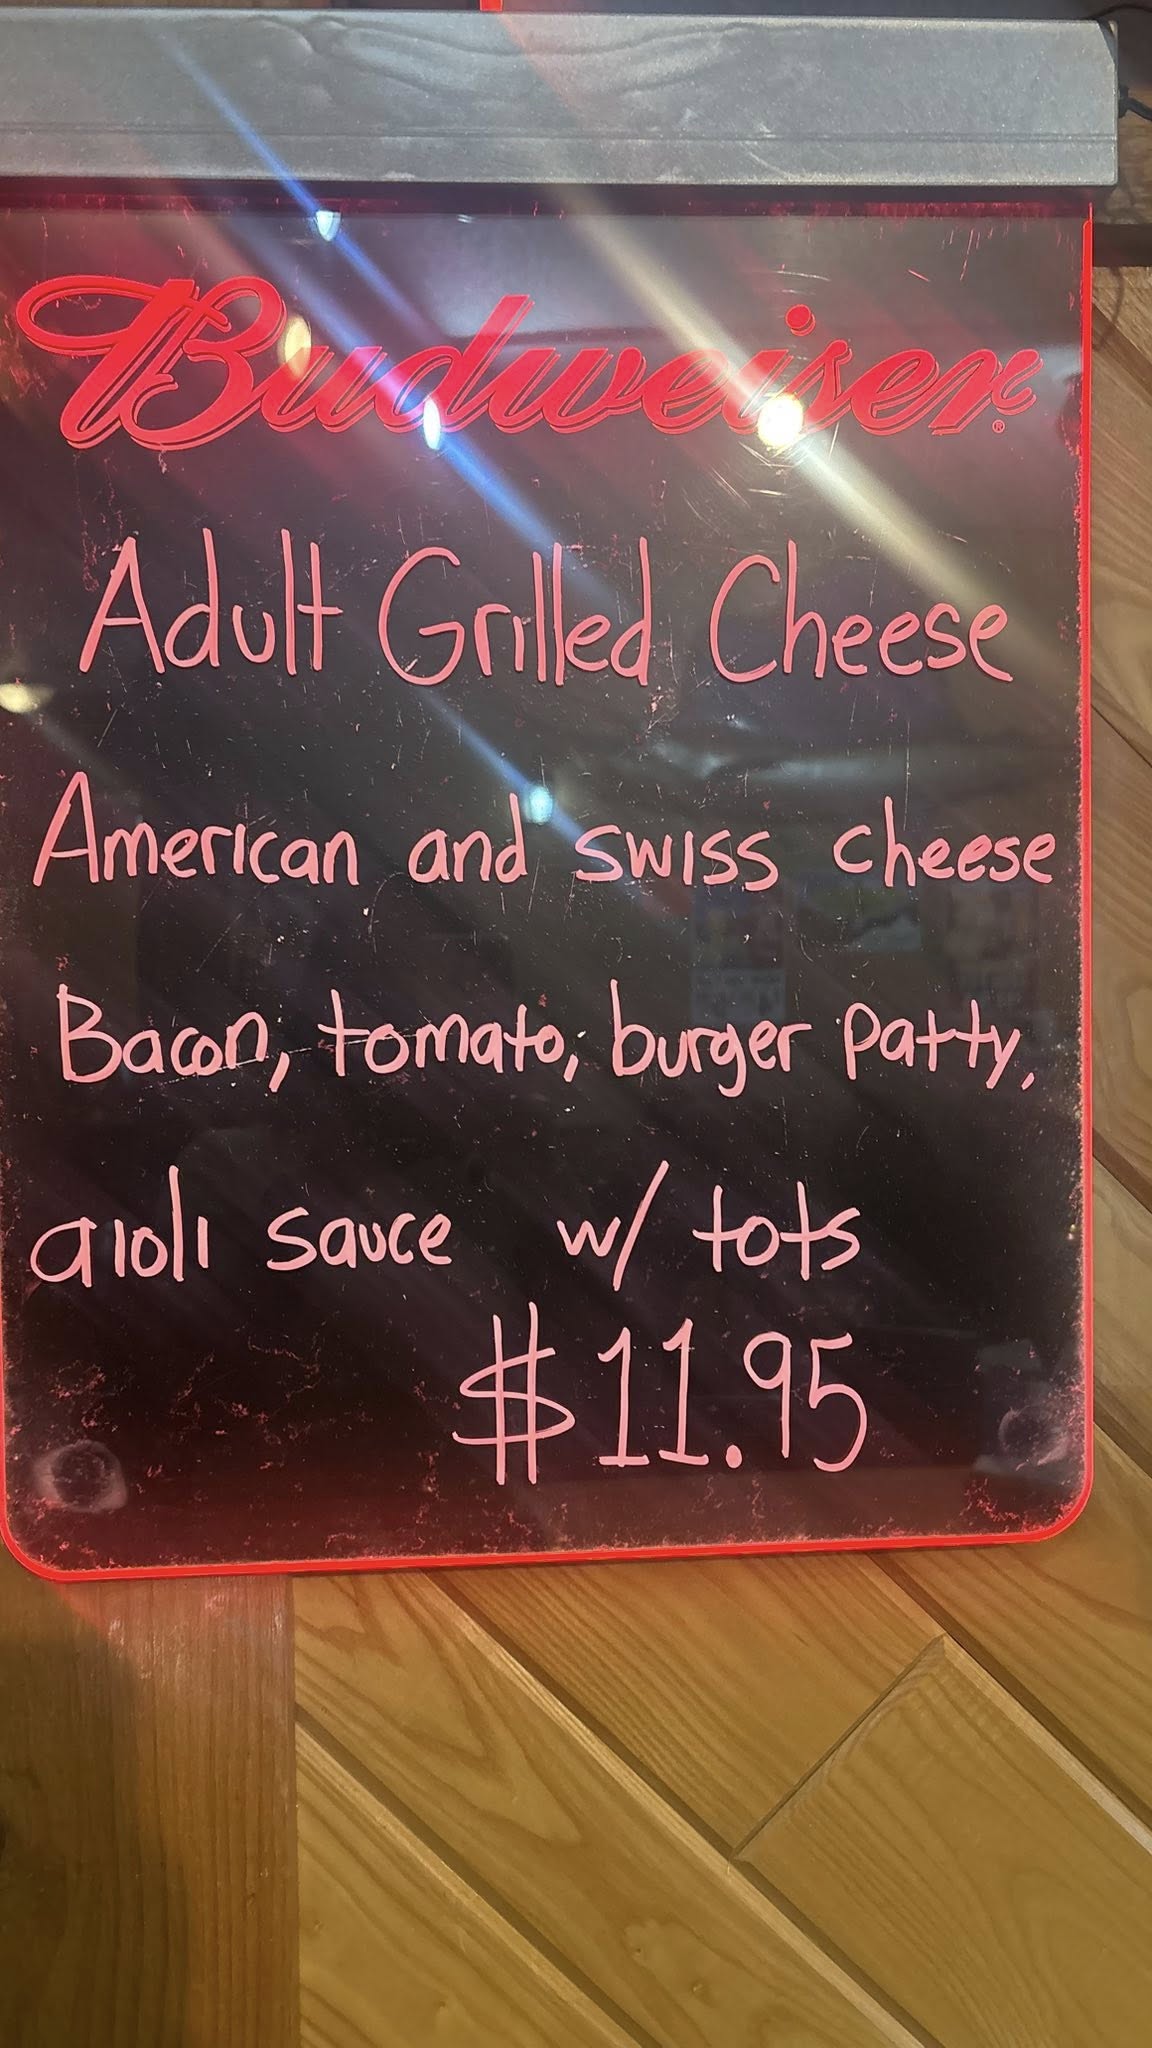 Budweiser®
Adult Grilled Cheese
American and swiss cheese
Bacon, tomato, burger patty,
aioli sauce w/ tots
$11.95